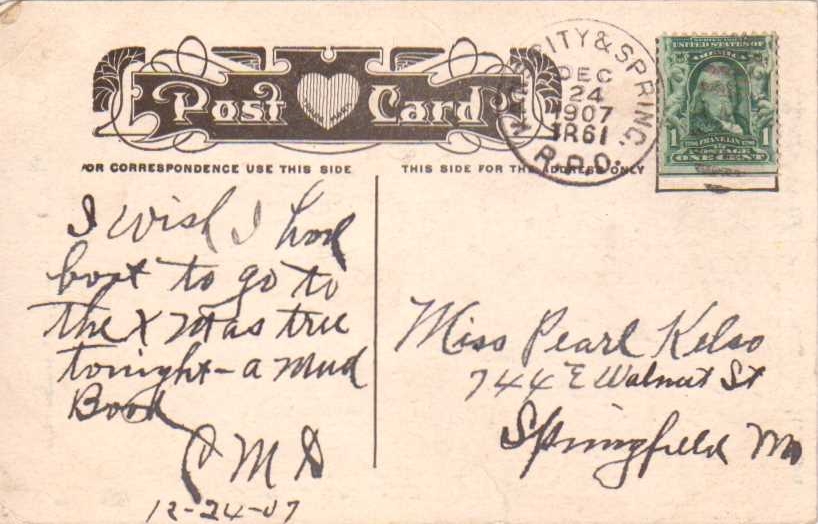 Post Card
OR CORRESPONDENCE USE THIS SIDE
THIS SIDE FOR THE ADDRESS ONLY
CITY & SPRING.
DEC
24
1907
TR61
R.P.O.
UNITED STATES OF
AMERICA
1 FRANKLIN 1
POSTAGE
ONE CENT
I wish I had
boat to go to
the X mas tree
tonight - a mud
Boat
C M D
12-24-07
Miss Pearl Kelso
744 E Walnut St
Springfield Mo